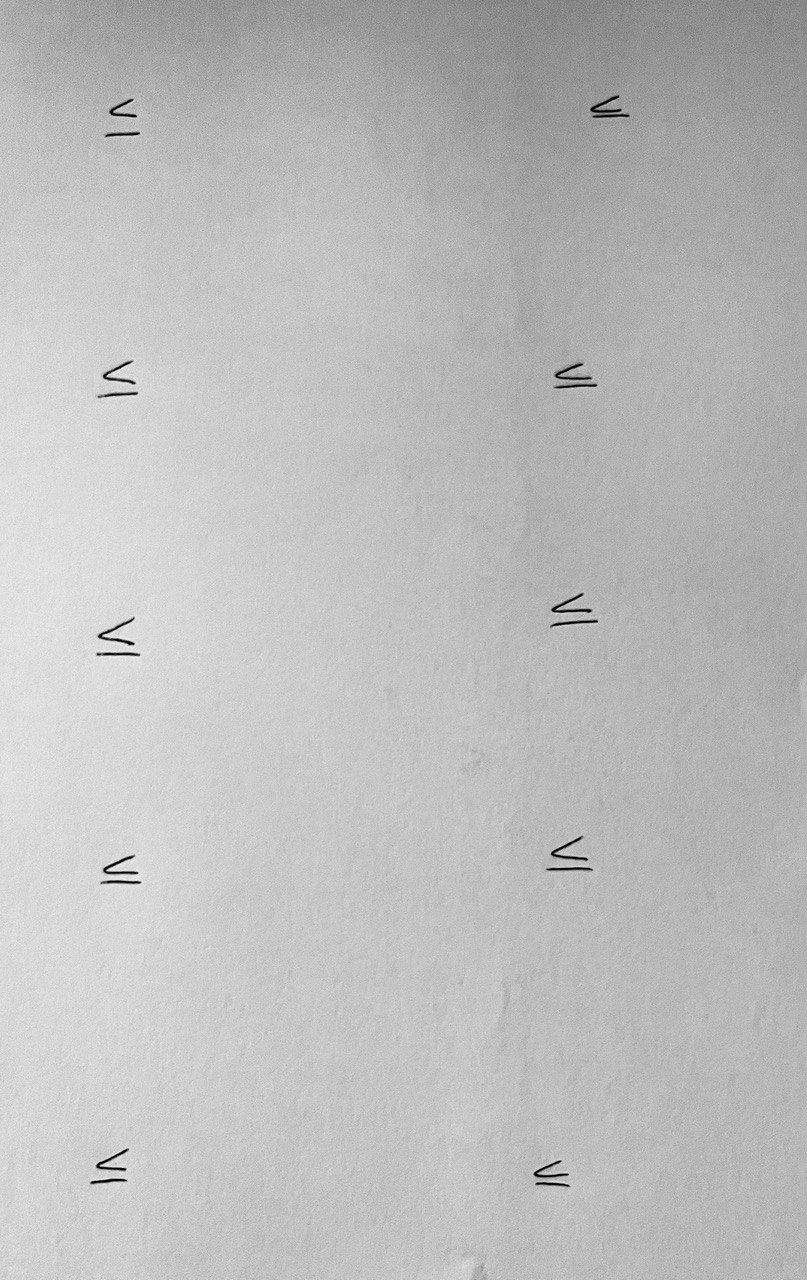 ≤ ≤
≤ ≤
≤ ≤
≤ ≤
≤ ≤